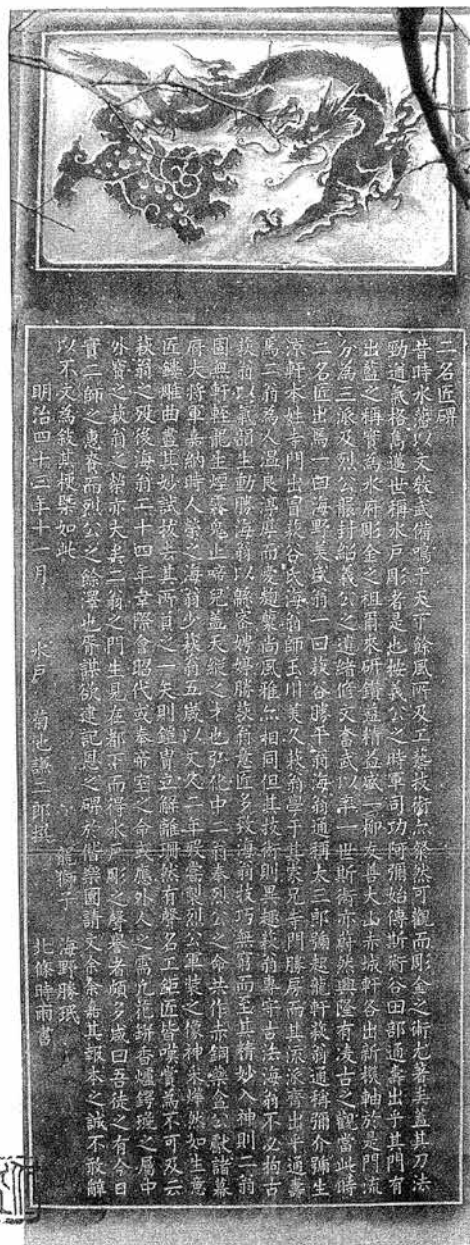 二名匠碑
昔時水藩以文教武備鳴于天下餘風所及工藝技術亦粲然可觀而彫金之術尤著矣蓋其刀法
勁遒氣格高邁世稱水戶彫者是也按義公之時軍司功阿彌始傳斯術谷田部通壽出乎其門有
出藍之稱實為水府彫金之祖爾來研鑽益精益盛一柳友善大山赤城軒各出新機軸於是門流
分為三派及烈公襲封紹義公之遺緒修文奮武以率一世斯術亦蔚然興隆有凌古之觀當此時
二名匠出焉一曰海野美盛翁一曰萩谷勝平翁海翁通稱太三郎彌起龍軒萩翁通稱彌介號生
涼軒本姓寺門出冒萩谷氏海翁師玉川美久萩翁學于其家兄寺門勝房而其流派齊出乎通壽
焉二翁為人溫良淳厚而憂頹襲尚風雅亦相同但其技術則異趣萩翁專守古法海翁不必拘古
萩翁以氣韻生動勝海翁以縣密娉婷勝萩翁意匠多致海翁技巧無窮而至其精妙入神則二翁
固無軒輊龍生煙霧鬼上啼兒蓋天縱之才也弘化中二翁奉烈公之命共作赤銅藥盒公獻諸幕
府大將軍嘉納時人榮之海翁少萩翁五歲以文久二年歿嘗製烈公軍裝之像神采燁然如生意
匠鏤雕曲盡其妙試拔去其所負之一矢則鎧冑立解離珊然有聲名工鉅匠皆嘆賞為不可及云
萩翁之歿後海翁二十四年幸際會昭代或奉帝室之命或應外人之需凡花瓶香爐鍔墂之屬中
外寶之萩翁之榮亦大矣二翁之門生見在都下而得水戶彫之聲譽者頗多咸曰吾徒之有今日
實二師之惠賚而烈公之餘澤也胥謀欲建記恩之碑於偕樂園請文余余嘉其報本之誠不敢辭
以不文為敘其梗槩如此
明治四十三年十一月　水戶　菊池謙二郎撰　龍獅子　海野勝珉
北條時雨書